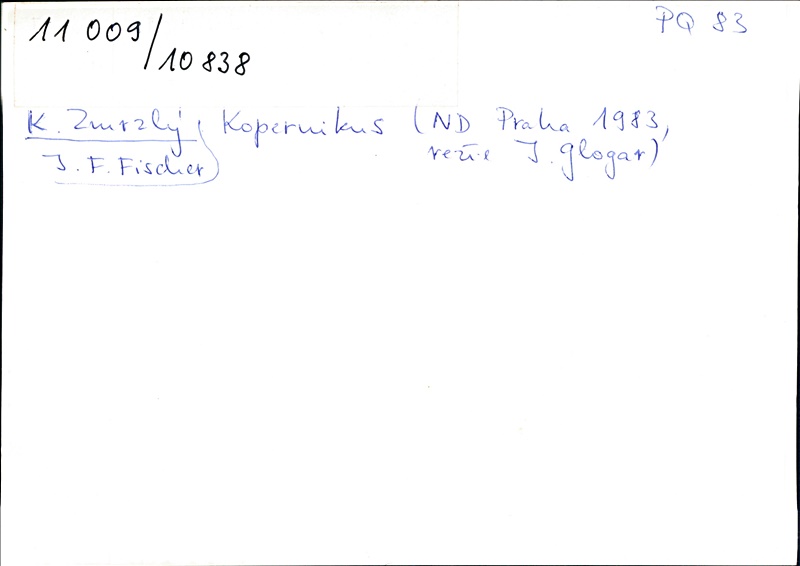 11 009/10838
PQ 83
K. Zmrzlý, Kopernikus (ND Praha 1983,
J. F. Fischer) režie J. Glogar)